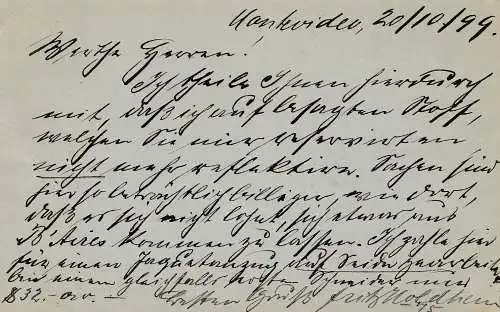 Montevideo, 20/10/99.
Werthe Herren!
Ich theile Ihnen hierdurch
mit, daß ich auf besagten Stoff,
welchen Sie mir reservirten
nicht mehr reflektire. Sachen sind
hier so beträchtlich billiger, wie dort,
daß es sich nicht lohnt, sich etwas aus
B'Aires kommen zu lassen. Ich zahle hier
für einen Jaquetanzug auf Seide gearbeitet
bei einem gleichfalls Schneider nur
$32.- oro. - Besten Gruß Fritz